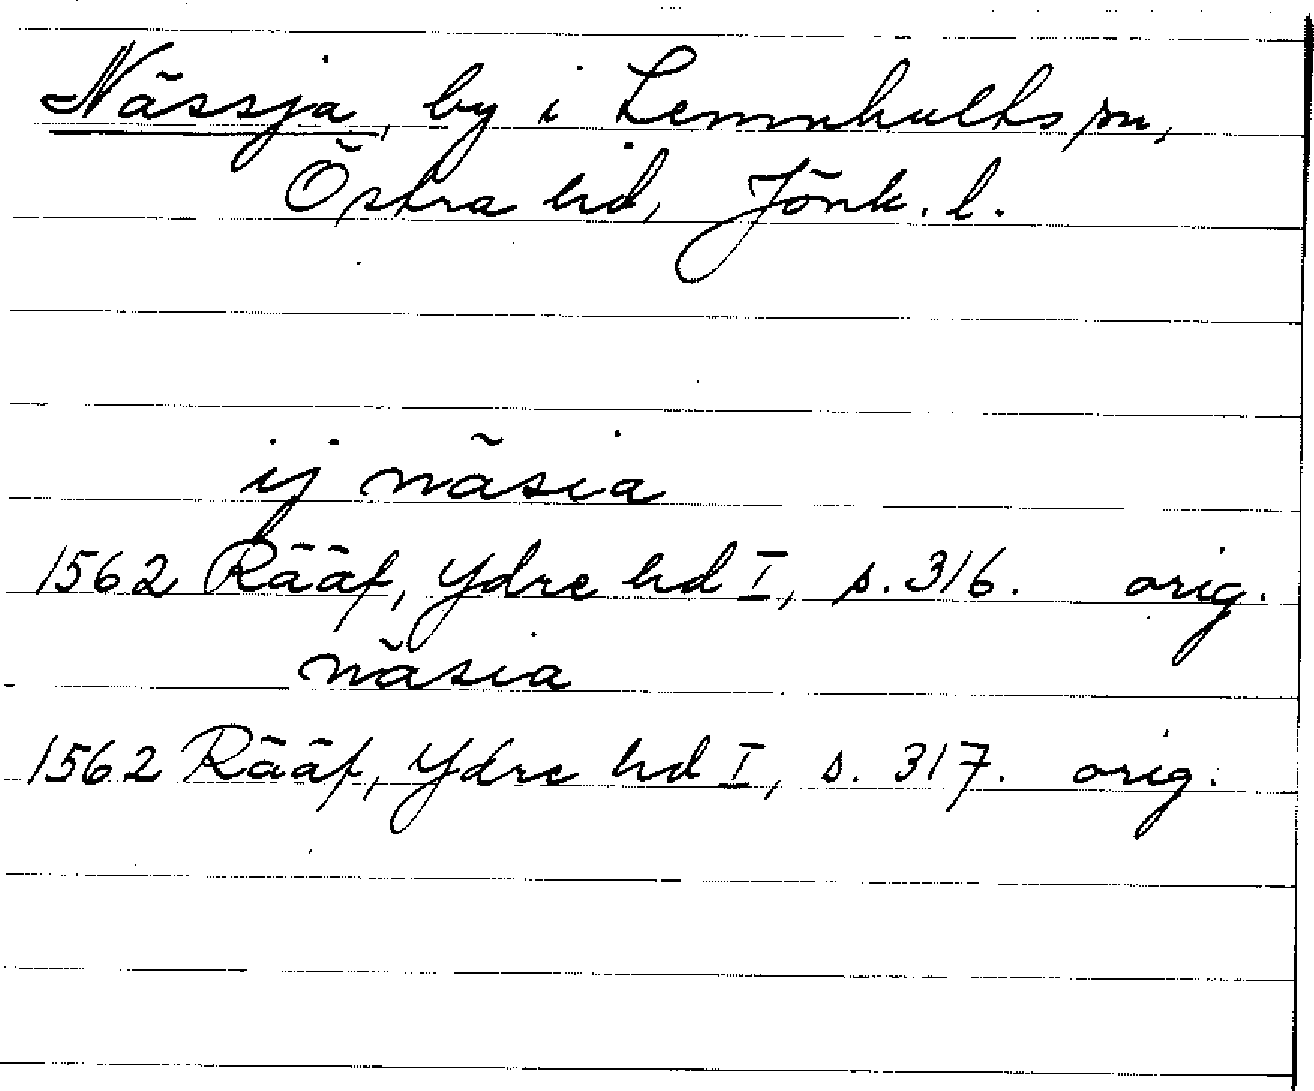 Nässja, by i Lemnhults sn,
Östra hd, Jönk. l.
ij näsia
1562 Rääf, Ydre hd I, s. 316. orig.
näsia
1562 Rääf, Ydre hd I, s. 317. orig.